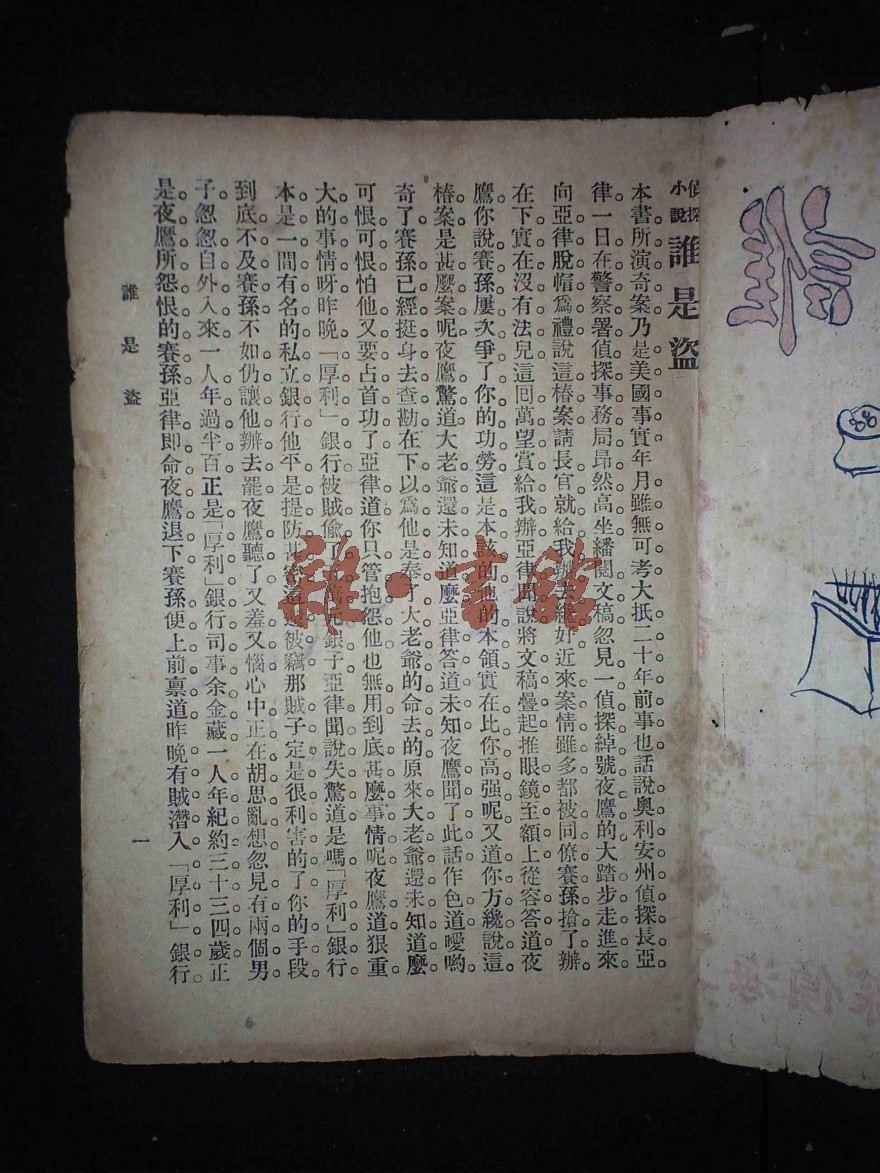 偵探小說 誰是盜
本書所演奇案乃是美國事實年月雖無可考大抵二十年前事也話說奧利安州偵探長亞
律一日在警察署偵探事務局昂然高坐繙閱文稿忽見一偵探綽號夜鷹的大踏步走進來
向亞律脫帽爲禮說這樁案請長官就給我辦去纔好近來案情雖多都被同僚賽孫搶了辦
在下實在沒有法兒這回萬望賞給我辦亞律聞說將文稿疊起推眼鏡至額上從容答道夜
鷹你說賽孫屢次爭了你的功勞這是本該的他的本領實在比你高强呢又道你方纔說這
樁案是甚麼案呢夜鷹驚道大老爺還未知道麼亞律答道未知夜鷹聞了此話作色道噯喲
奇了賽孫已經挺身去查勘在下以爲他是奉了大老爺的命去的原來大老爺還未知道麼
可恨可恨怕他又要占首功了亞律道你只管抱怨他也無用到底甚麼事情呢夜鷹道狠重
大的事情呀昨晚「厚利」銀行被賊偷了 銀子亞律聞說失驚道是嗎「厚利」銀行
本是一間有名的私立銀行他平是提防甚 被竊那賊子定是很利害的了你的手段
到底不及賽孫不如仍讓他辦去罷夜鷹聽了又羞又惱心中正在胡思亂想忽見有兩個男
子忽忽自外入來一人年過半百正是「厚利」銀行司事余金藏一人年紀約三十三四歲正
是夜鷹所怨恨的賽孫亞律卽命夜鷹退下賽孫便上前禀道昨晚有賊潛入「厚利」銀行
誰是盜
一
雜·書館